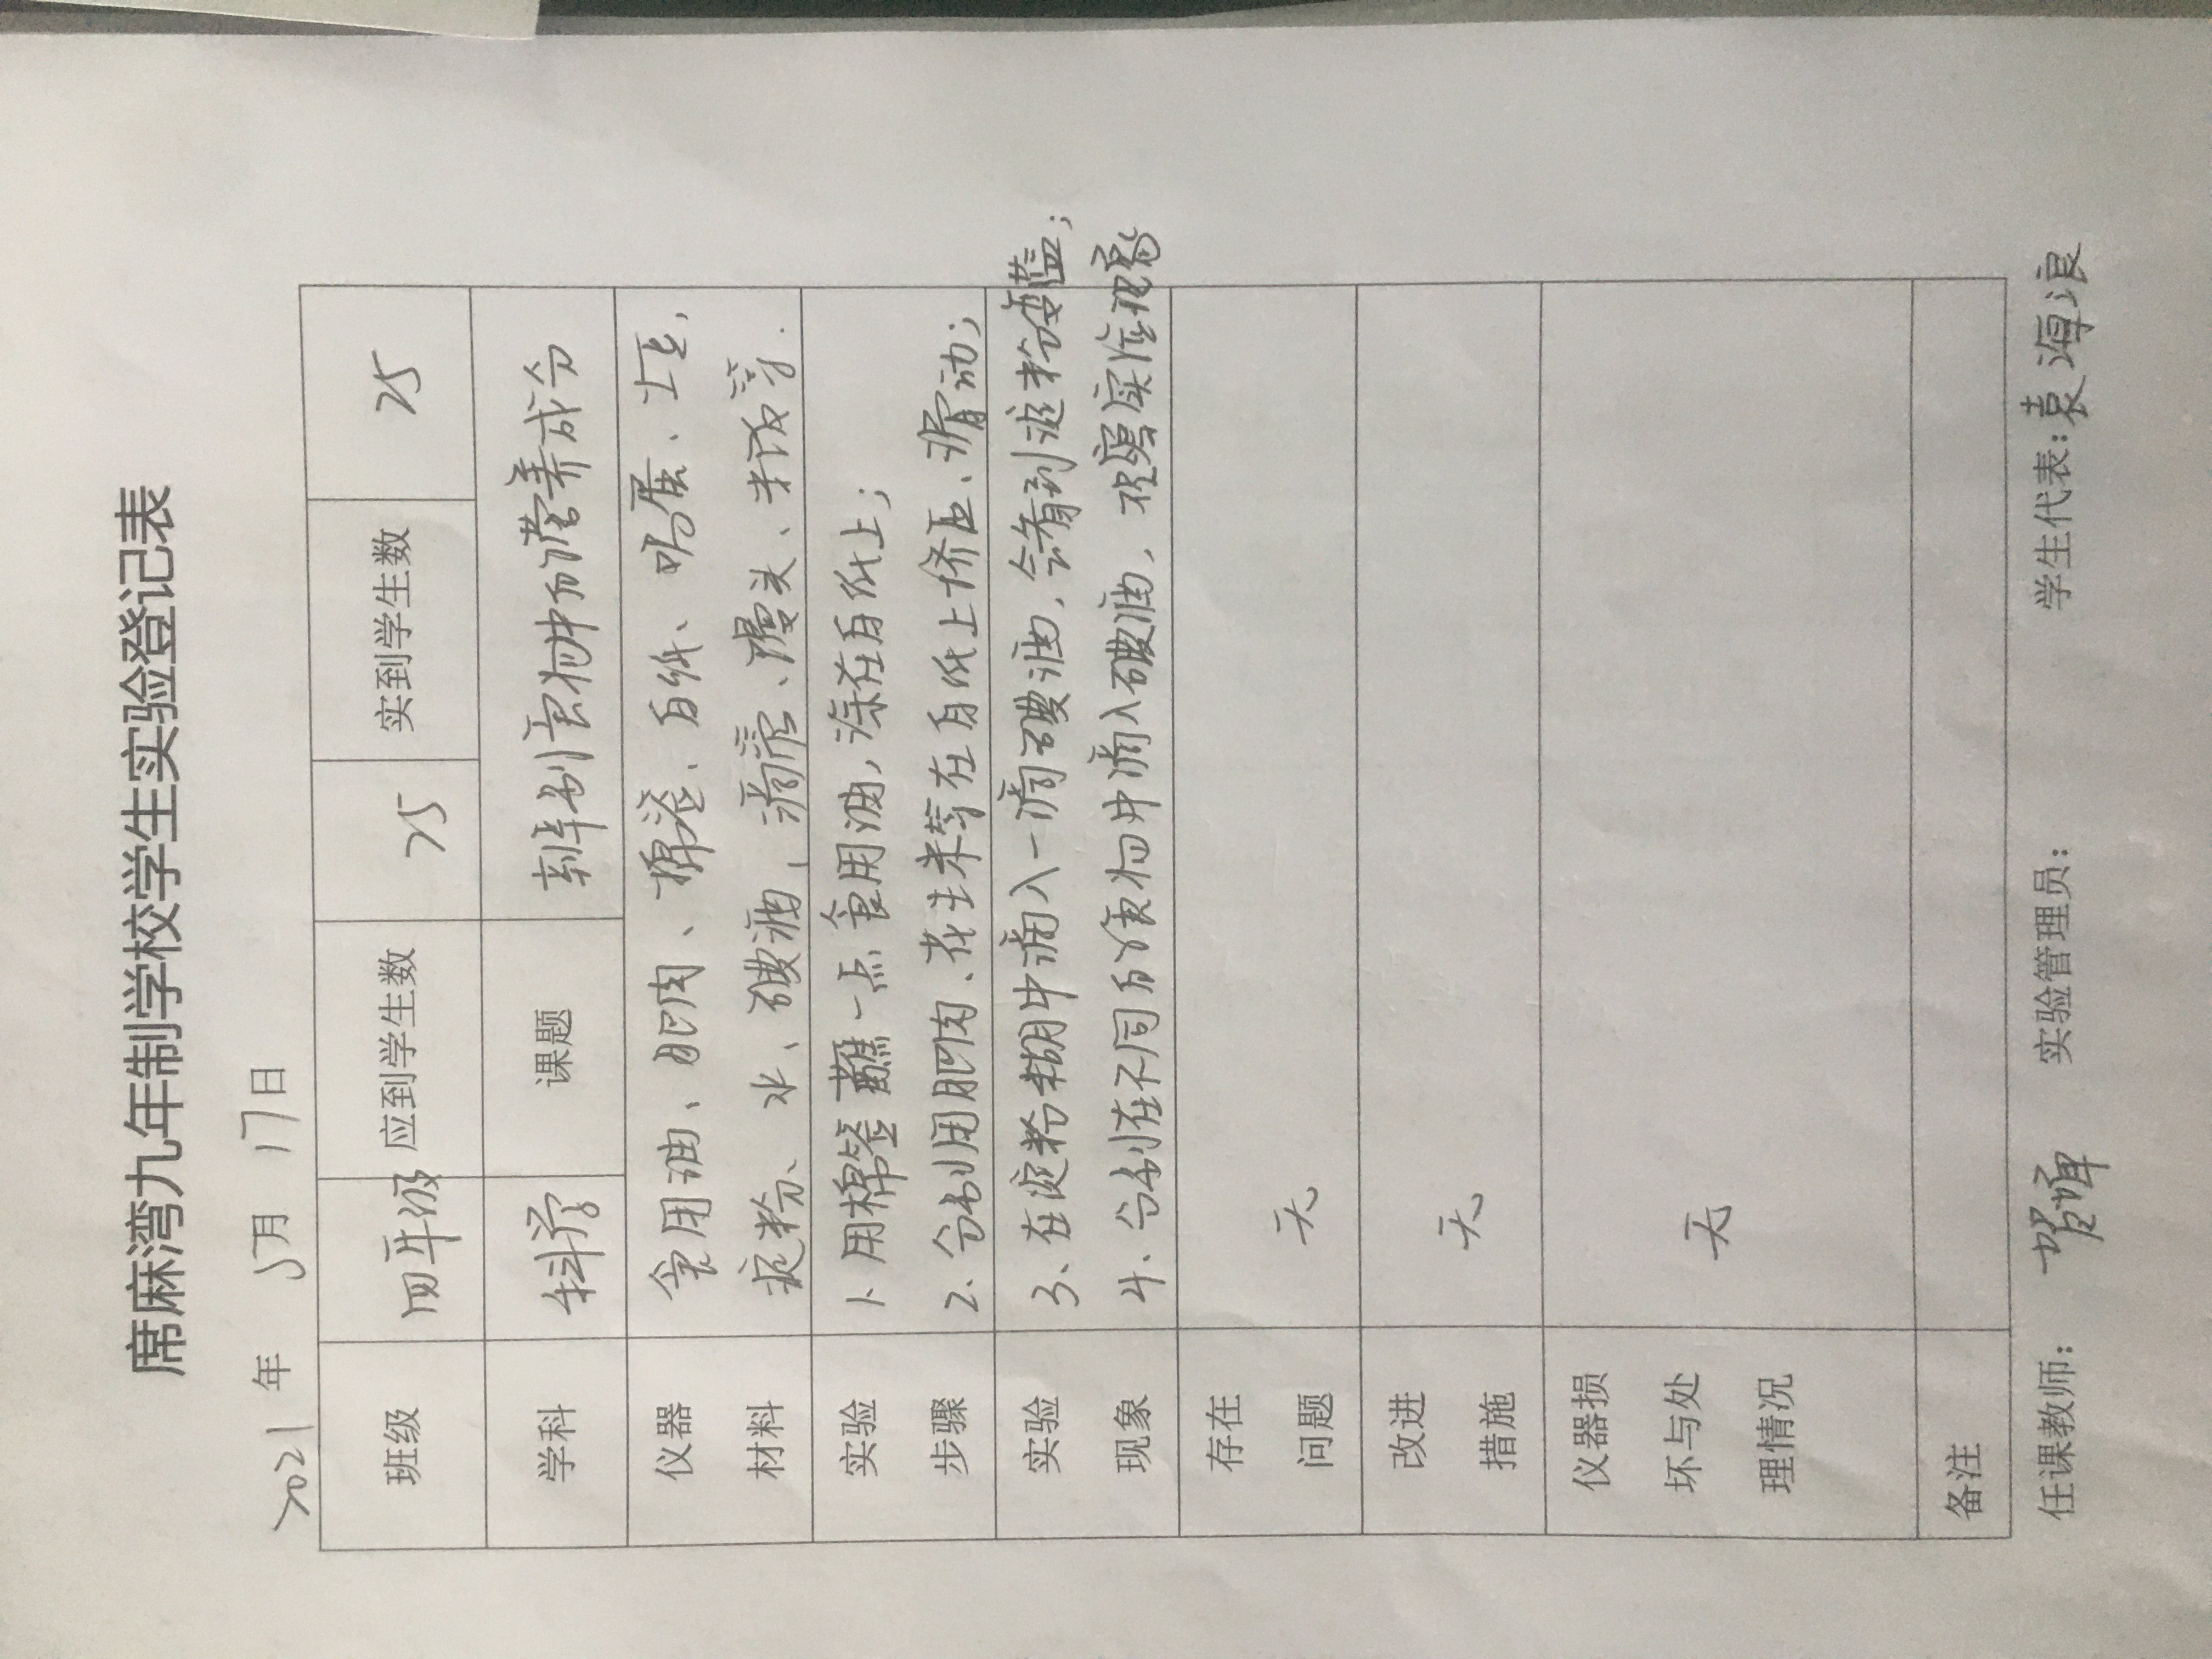 席麻湾九年制学校学生实验登记表
2021年 5月 17日
班级 四年级 应到学生数 25 实到学生数 25
学科 科学 课题 辨别食物中的营养成分
仪器 食用油、肥肉、棉签、白纸、鸡蛋、土豆,
材料 淀粉、水、碘酒、滴管、馒头、米饭等.
实验 1、用棉签蘸一点食用油,涂在白纸上;
步骤 2、分别用肥肉、花生米等在白纸上挤压、滑动;
实验 3、在淀粉糊中滴入一滴碘酒,会看到淀粉变蓝;
现象 4、分别在不同的食物中滴入碘酒,观察实验现象
存在
问题 无
改进
措施 无
仪器损
坏与处 无
理情况
备注
任课教师: 实验管理员: 学生代表:袁海浪